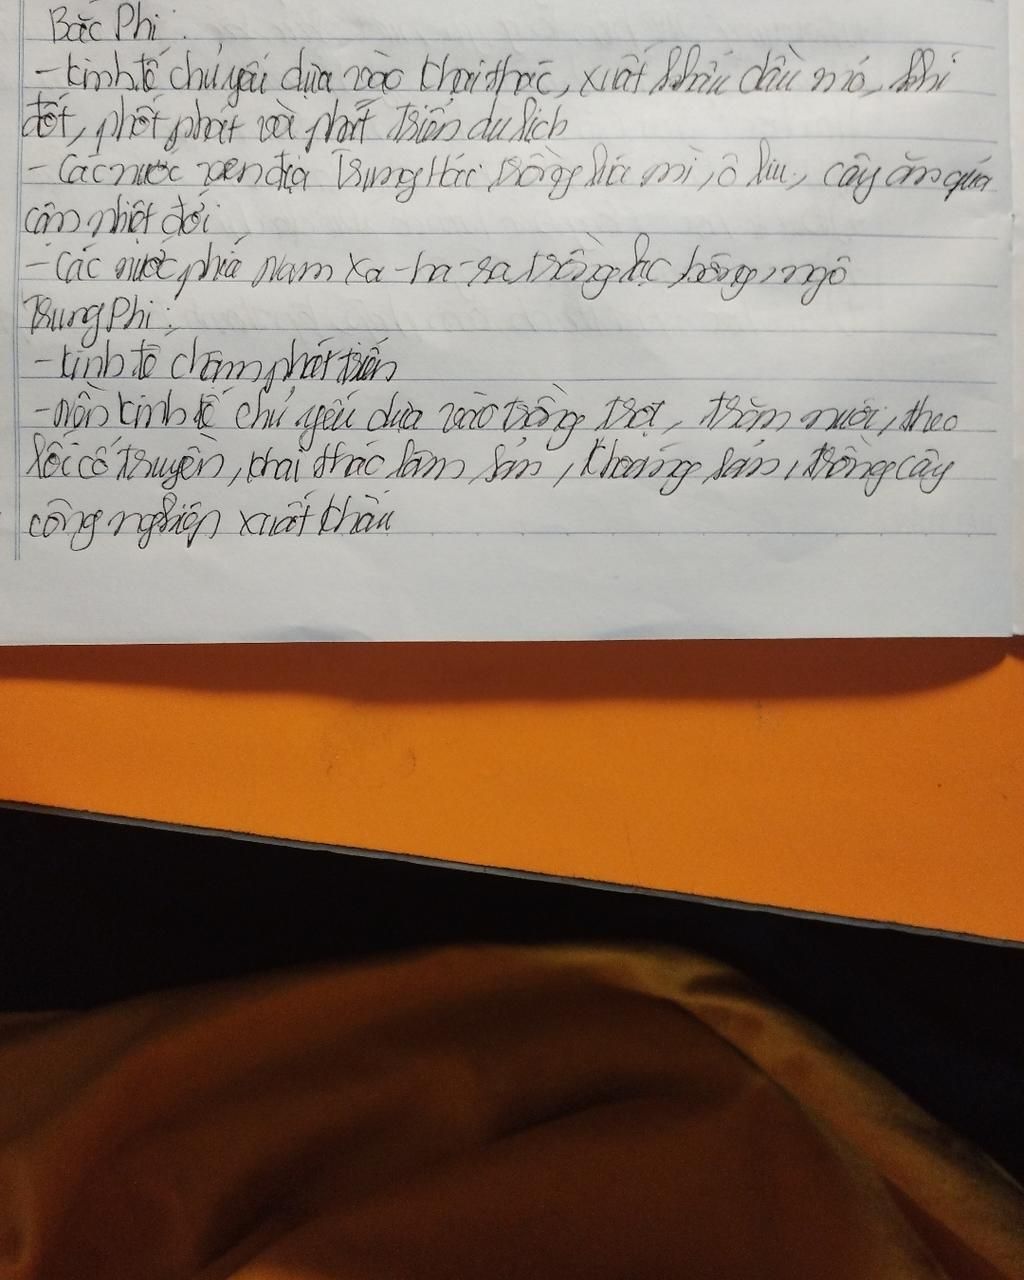 Bắc Phi :
- Kinh tế chủ yếu dựa vào khai thác, xuất khẩu dầu mỏ, khí
đốt, phốt phát và phát triển du lịch
- Các nước ven địa Trung Hải trồng lúa mì, ô liu, cây ăn quả
cận nhiệt đới
- Các nước phía nam Xa-ha-ra trồng lạc, bông, ngô
Trung Phi :
- Kinh tế chậm phát triển
- nền kinh tế chủ yếu dựa vào trồng trọt, trăn nuôi, theo
lối cổ truyền, khai thác lâm sản, khoáng sản, trồng cây
công nghiệp xuất khẩu